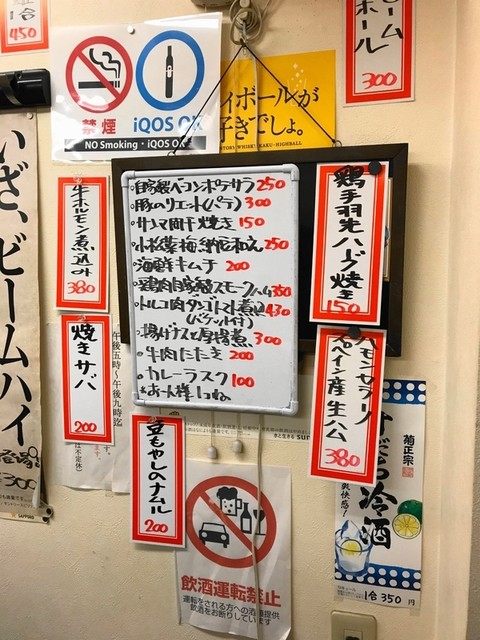 450
ーム
ール
300
禁煙
iQOS OK
NO Smoking・iQOS OK
ィボールが
好きでしょ。
いざ、ビームハイ
牛ホルモン煮込み
380
焼きサバ
200
午後五時〜午後九時迄
豆もやしのナムル
200
自家製ベーコンポテサラ 250
豚のリエット(パテ) 300
サンマ丸干焼き 150
小松菜梅納豆和え 250
海鮮キムチ 200
鶏肉自家製スモークハム 350
トルコ肉ダンゴトマト煮込 430
(バケット付)
揚げナスと厚揚煮 300
牛肉たたき 200
カレーラスク 100
*お一人様1つね
鶏手羽先ハーブ焼き
150
ハモンセラーノ
スペイン産生ハム
380
菊正宗
すだち冷酒
1合 350円
飲酒運転禁止
運転をされる方への酒類提供
飲酒をお断りしています